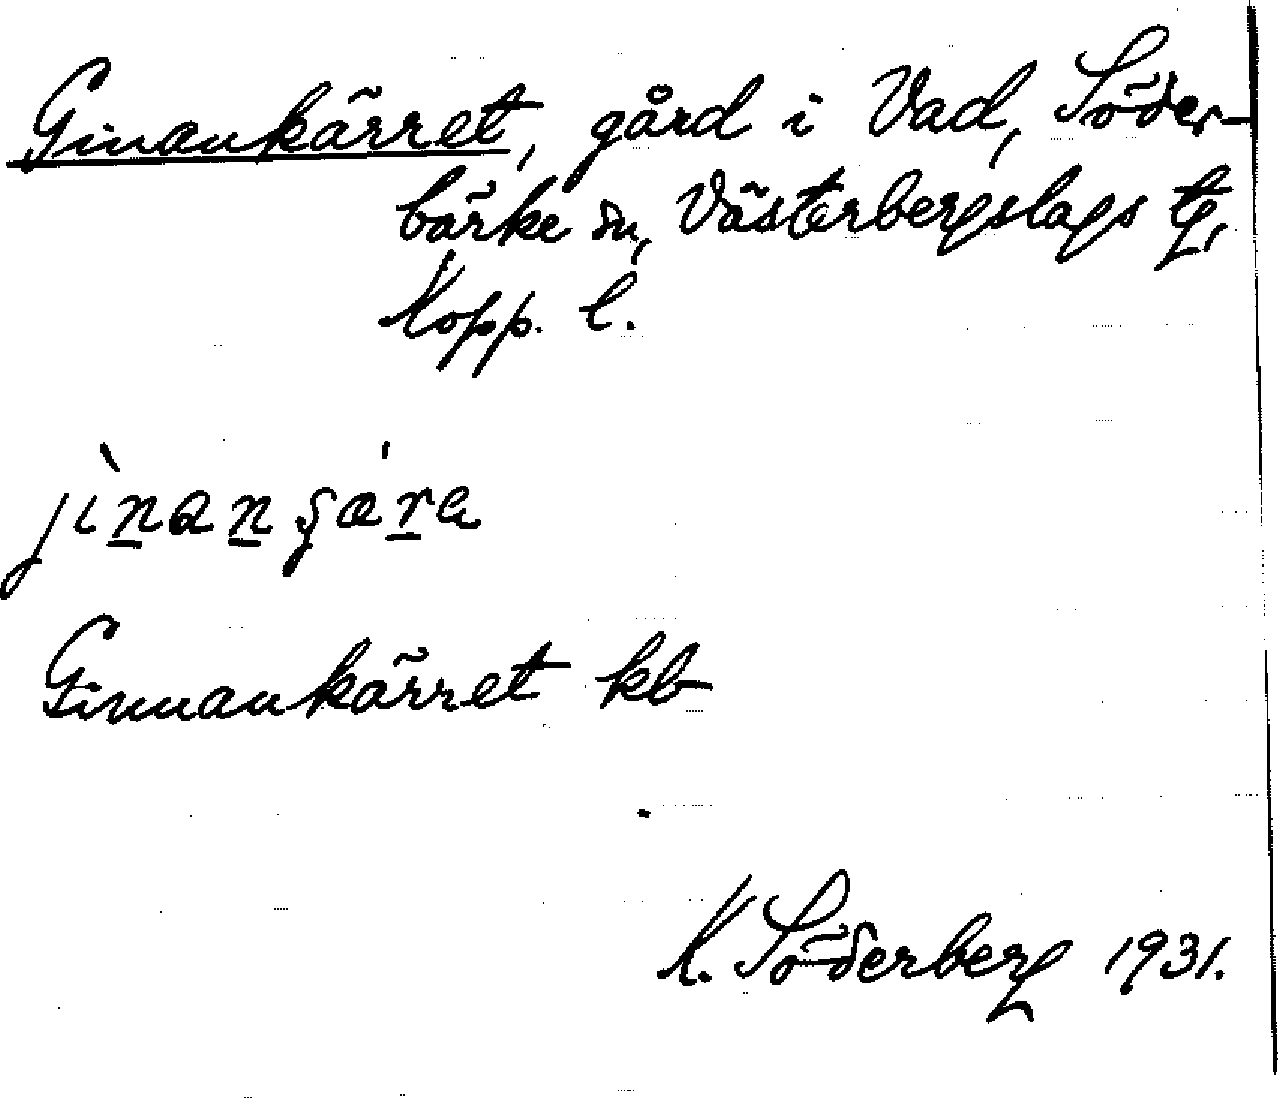 Ginankärret, gård i Vad, Söder-
bärke sn, Västerbergslags tg,
Kopp. l.
jìnanʂæ̀ra
Ginnankärret kb
K. Söderberg 1931.